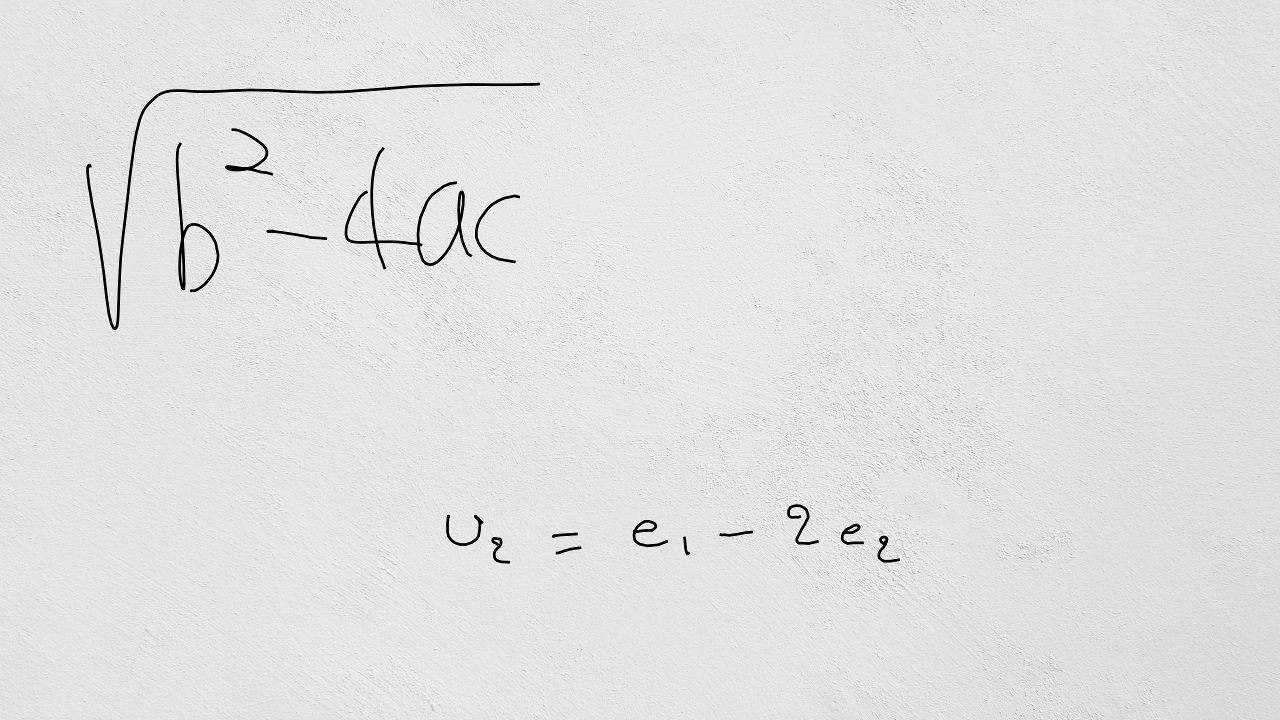 √(b² - 4ac)
υ₂ = e₁ - 2e₂